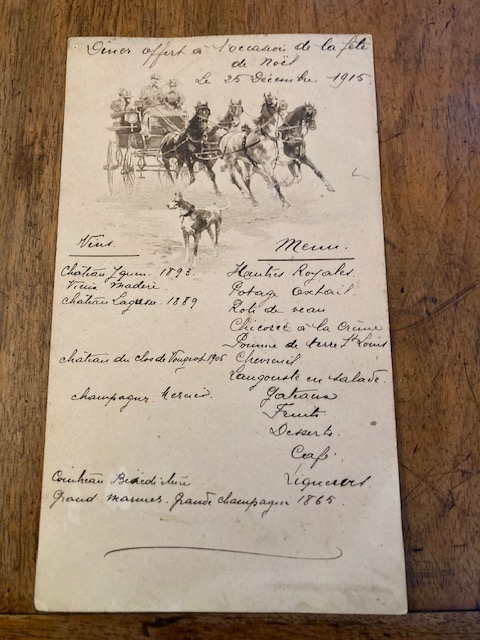 Dîner offert à l'occasion de la fête
de Noël
Le 25 Décembre 1915.
Vins.
Château Yquem. 1893.
Vieux Madère
Château Lagune. 1889
Château du clos de Vougeot 1905
Champagne
Menu.
Huîtres Royales.
Potage Oxtail.
Roti de veau
Chicorée à la Crème
Pomme de terre St Louis
Chevreuil
Langouste en salade.
Gateaux
Fruits
Desserts.
Café.
Liqueurs.
Cointreau Bénédictine
Grand marnier. Grande champagne 1865.